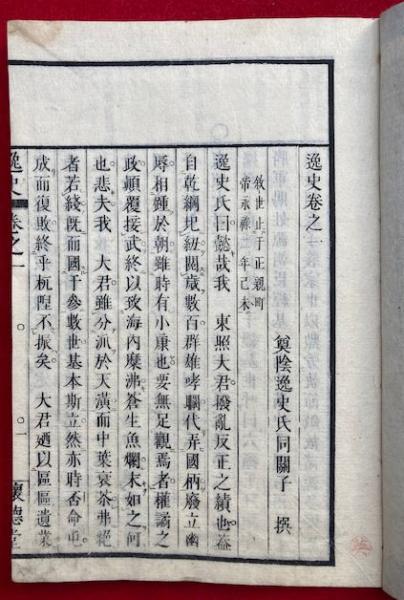 逸史卷之一
奠陰逸史氏同關子　撰
敘世止于正親町
帝永祿二年己未
逸史氏曰懿哉我　東照大君撥亂反正之績也蓋
自乾綱圮紐閱歲數百群雄哮闞代弄國柄廢立幽
辱相踵於朝雖時有小康也要無足觀焉者權譎之
政顛覆接武終以致海內糜沸蒼生魚爛末如之何
也悲夫我　大君雖分派於天潢而中葉衰苶弗絕
者若綫既而國于參數世基本斯立然亦時否命屯
成而復敗終乎杌隉不振矣　大君廼以區區遺業
逸史　卷之一　一　懷德堂